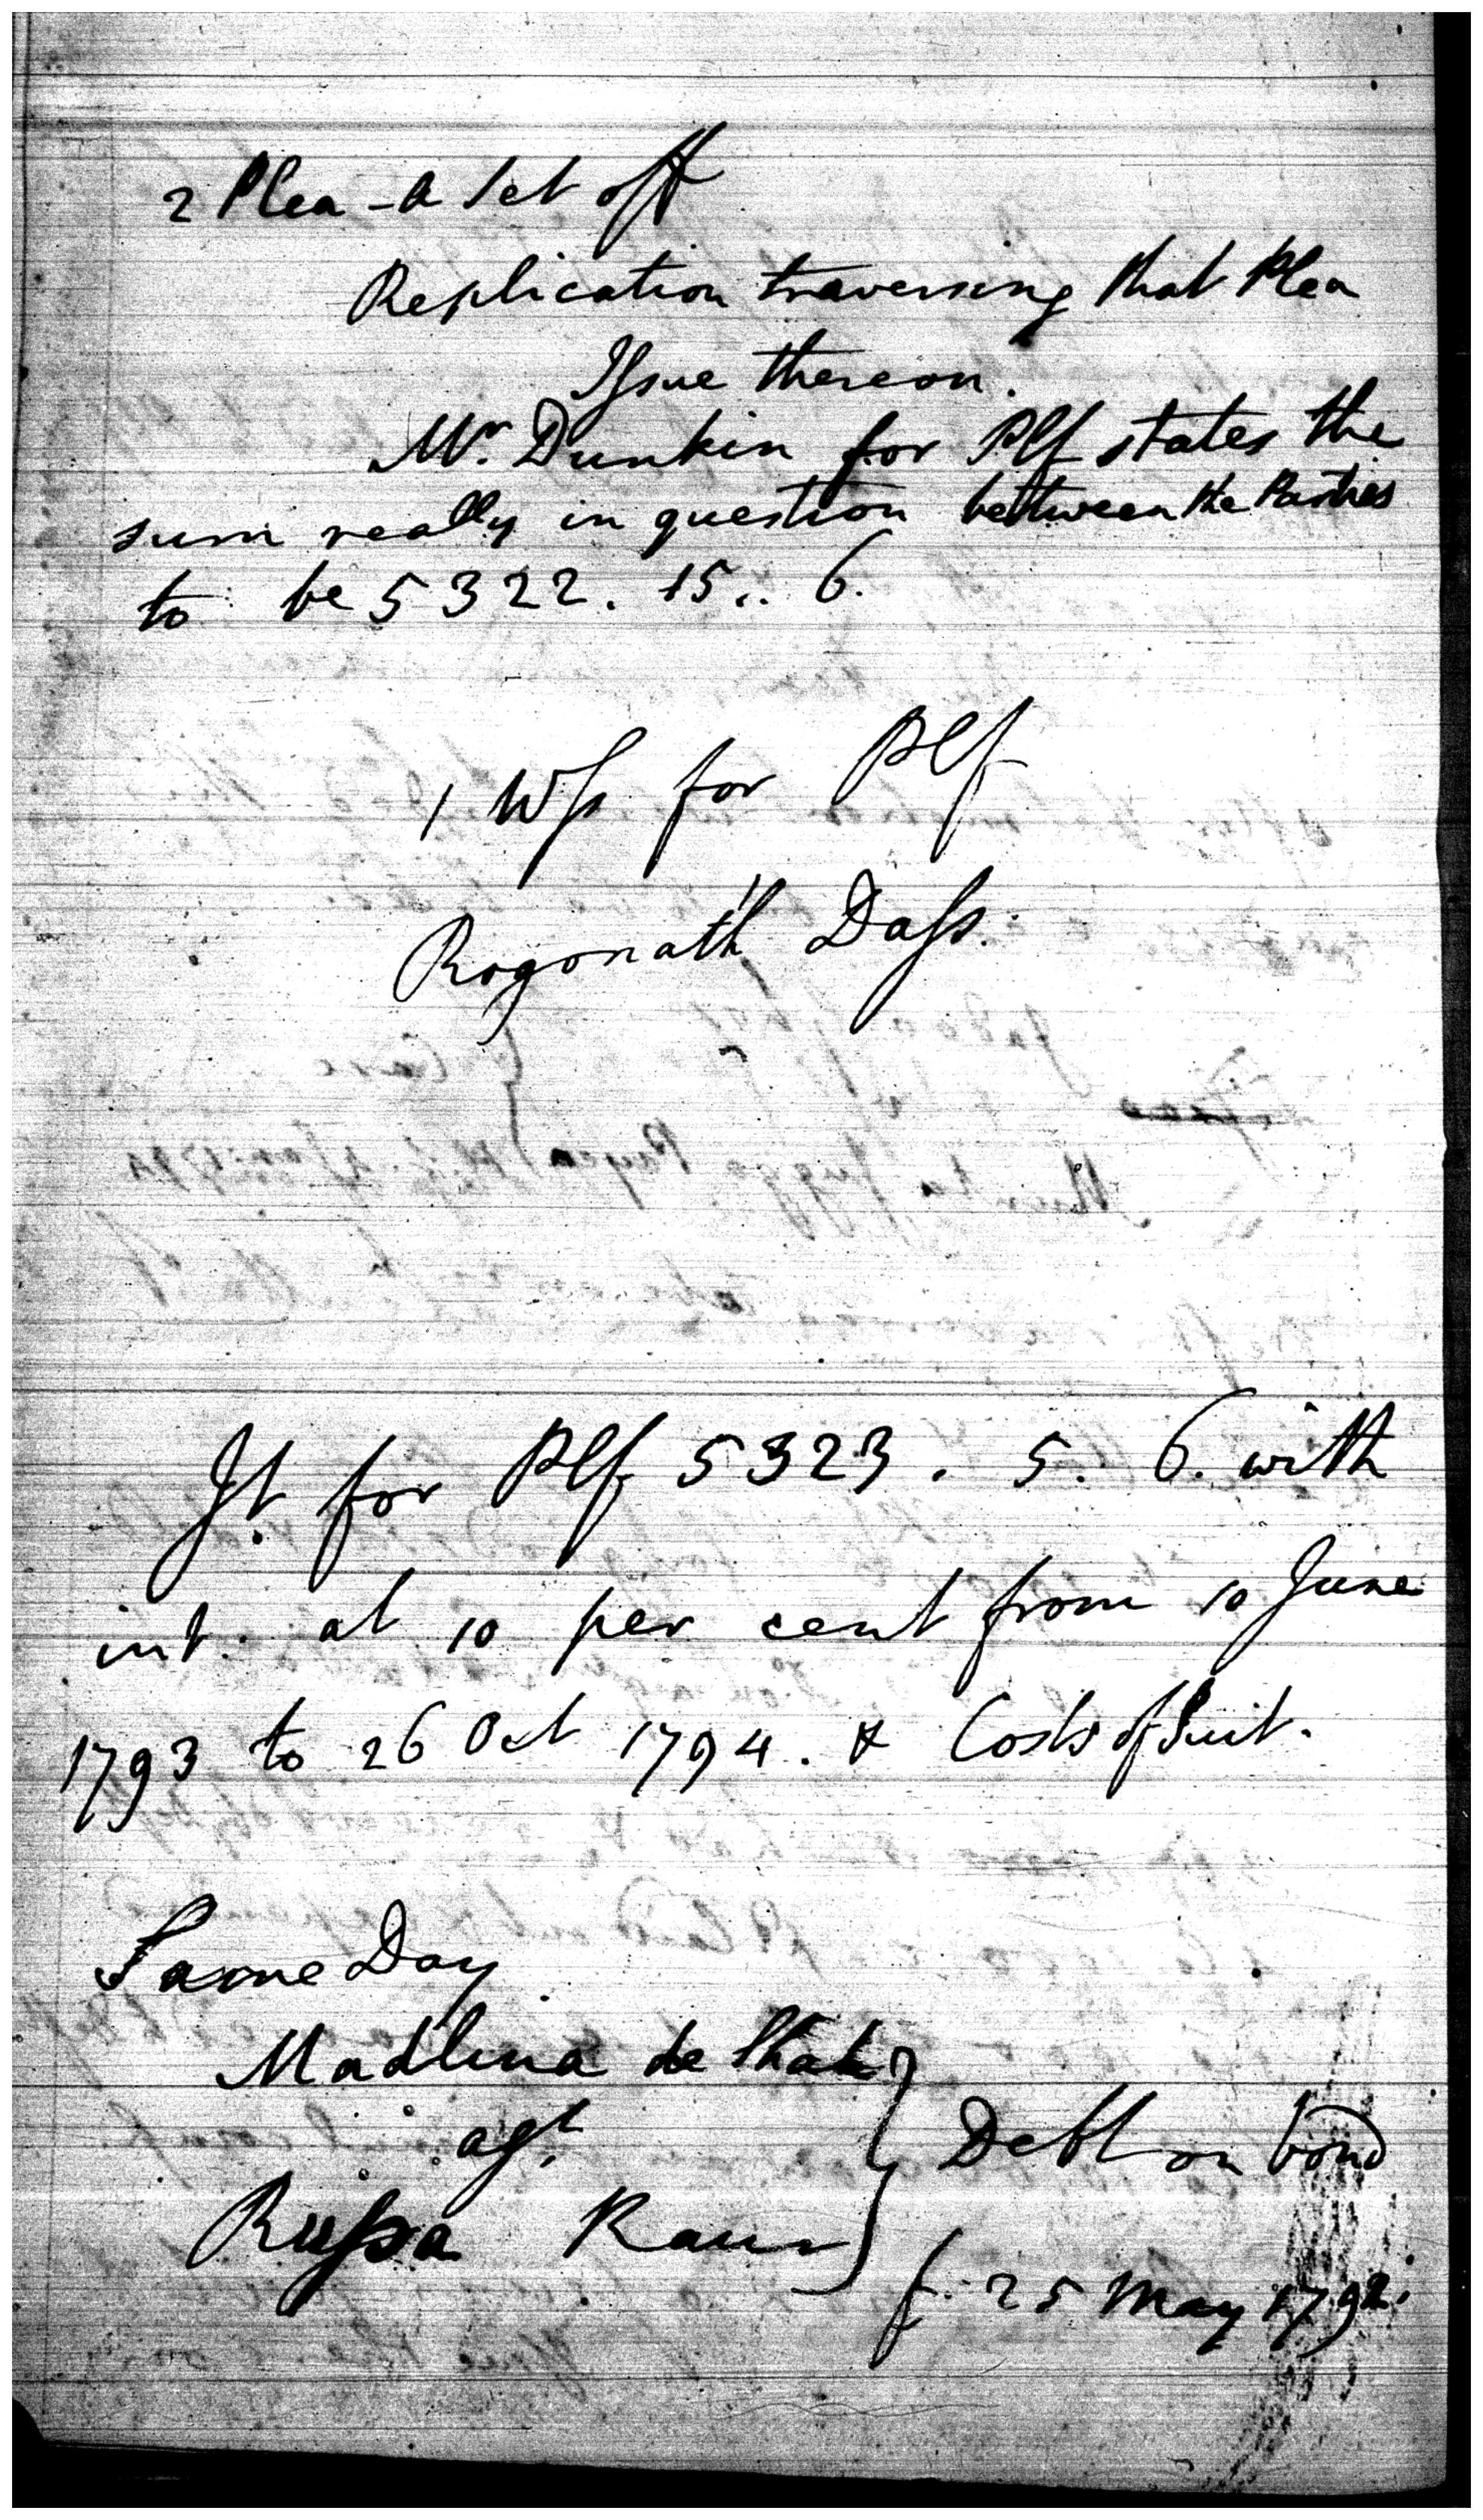 2 Plea - A set off
Replication traversing that Plea
Issue thereon.
Mr. Dunkin for Plf states the
sum really in question between the Parties
to be 5322. 15.. 6.
1 Wss for Plf
Rogonath Dass.
Jt. for Plf 5323. 5. 6. with
int. at 10 per cent from 10 June
1793 to 26 Oct 1794. & Costs of Suit.
Same Day
de
agt.
Debt on bond
Russa Raur
f. 25 May 1792.